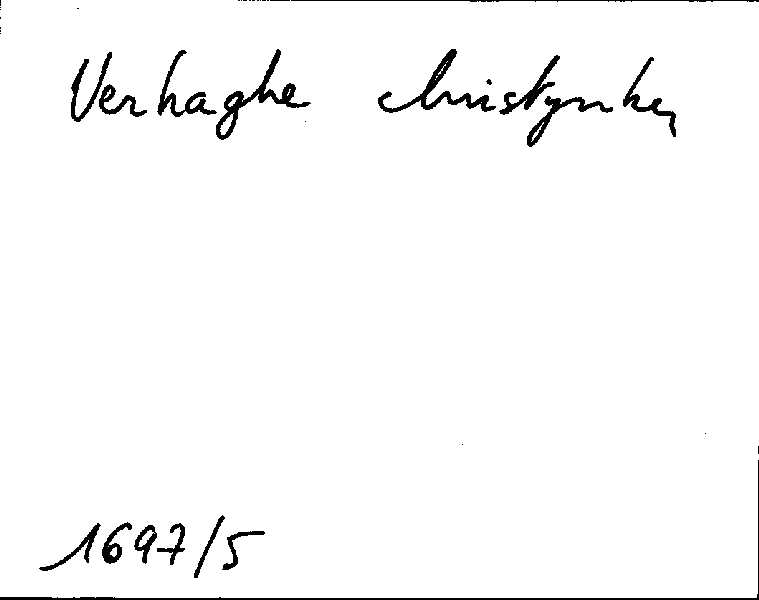 Verhaghe Christynken
1697/5